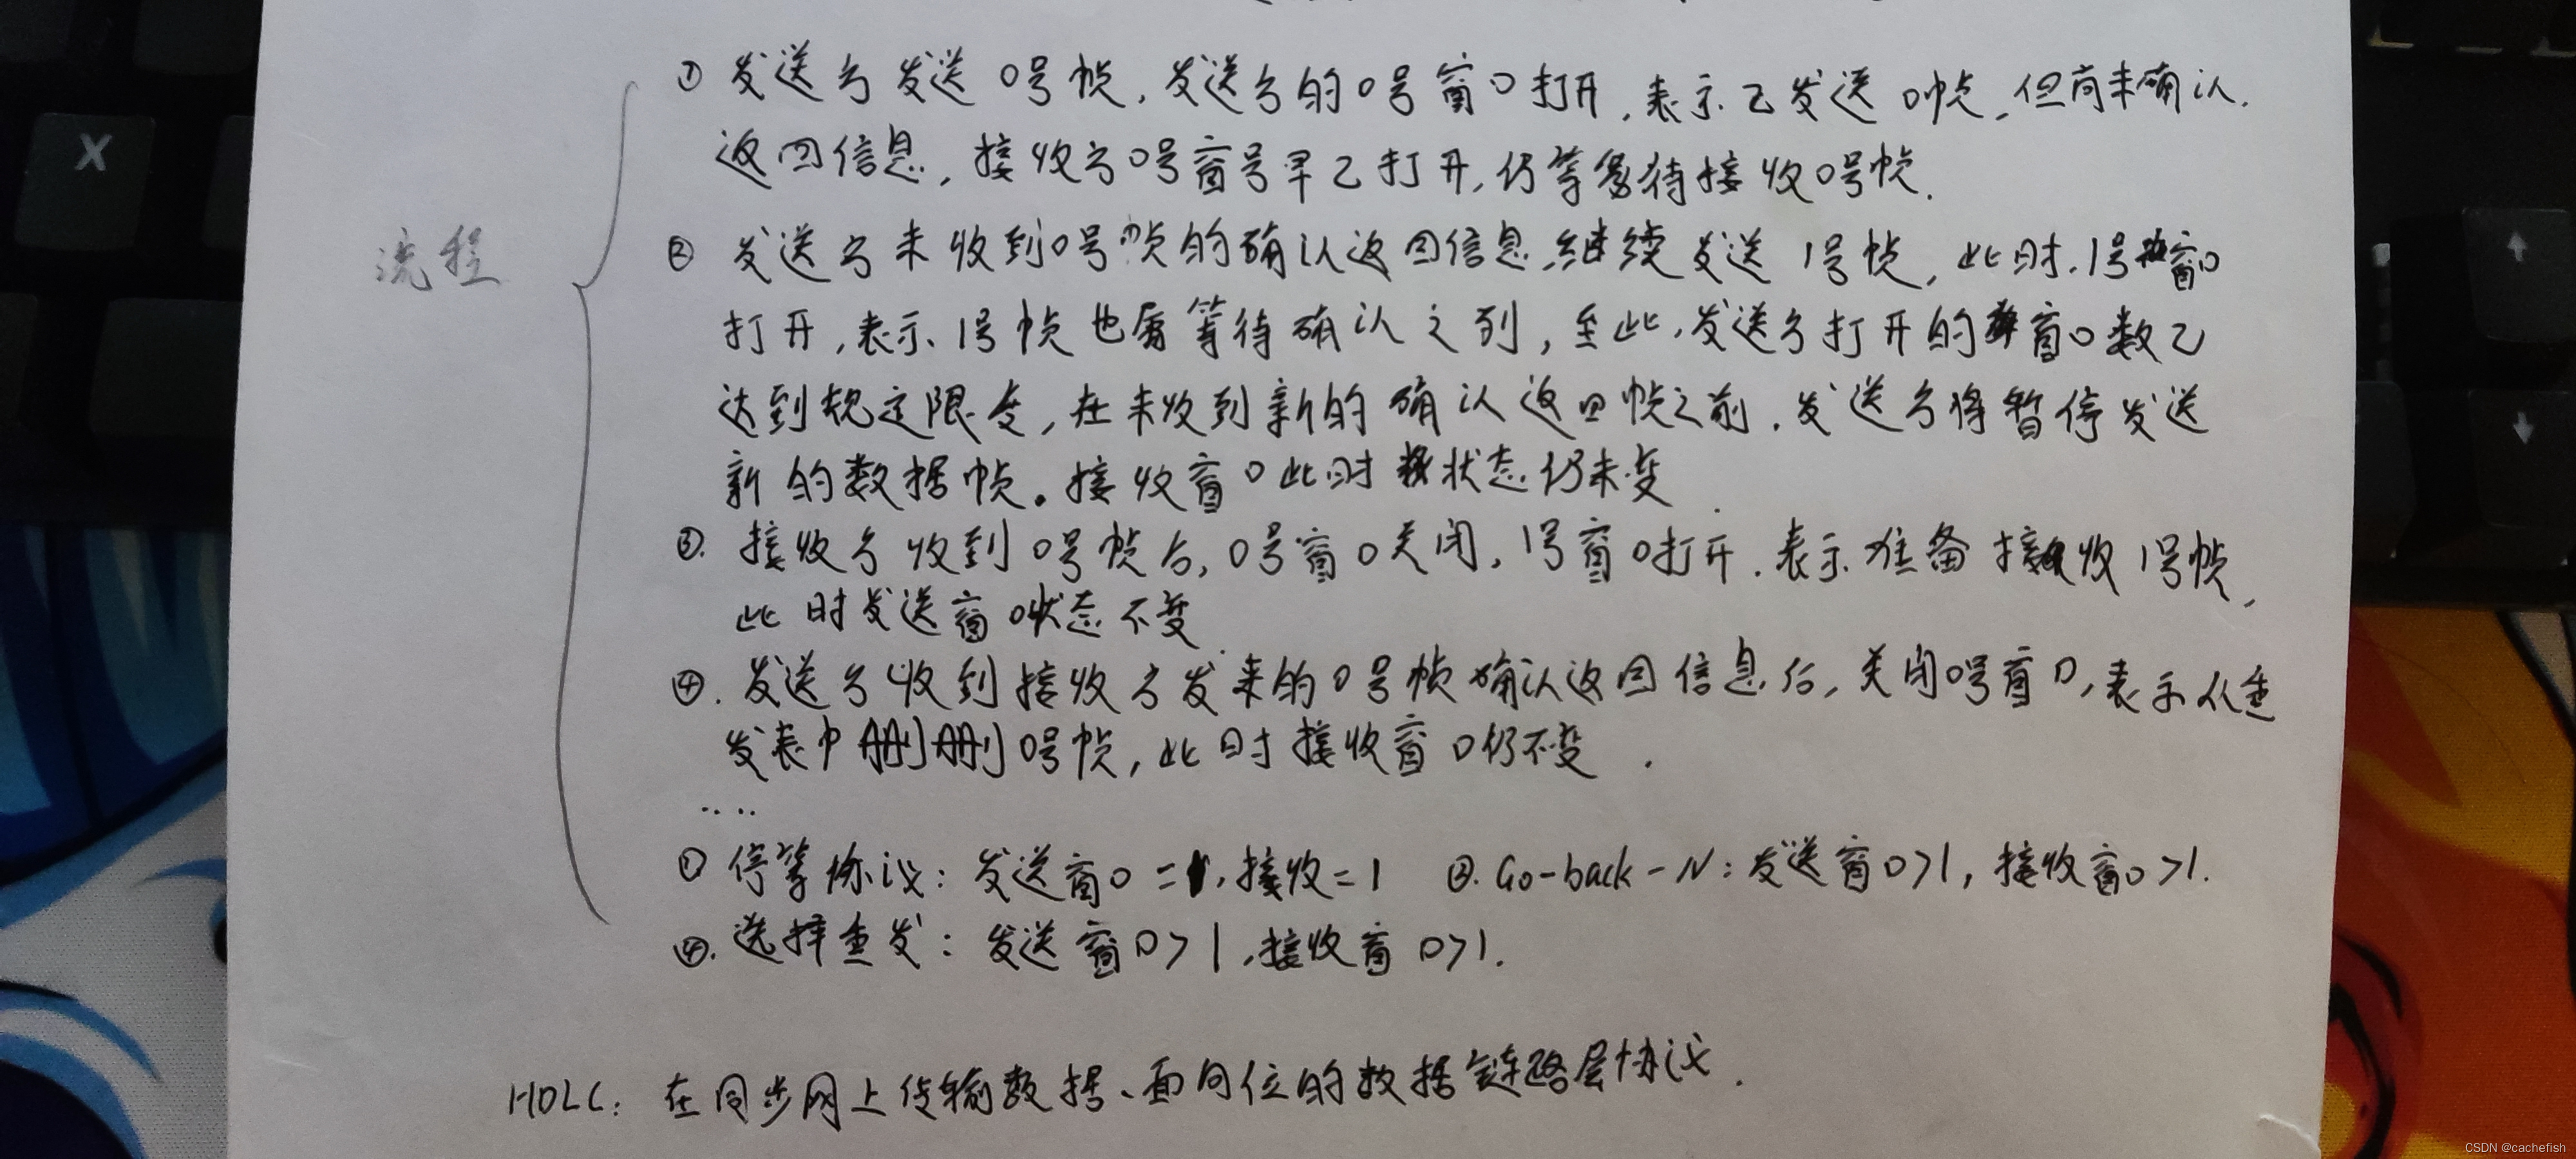 ① 发送方发送0号帧,发送方的0号窗口打开,表示已发送0帧,但尚未确认.
返回信息,接收方0号窗号早已打开,仍等待接收0号帧.
② 发送方未收到0号帧的确认返回信息,继续发送1号帧,此时,1号窗口
流程
打开,表示1号帧也属等待确认之列,至此,发送方打开的窗口数已
达到规定限度,在未收到新的确认返回帧之前,发送方将暂停发送
新的数据帧。接收窗口此时状态仍未变.
③. 接收方收到0号帧后,0号窗口关闭,1号窗口打开.表示准备接收1号帧,
此时发送窗口状态不变.
④. 发送方收到接收方发来的0号帧确认返回信息后,关闭0号窗口,表示从重
发表中删删0号帧,此时接收窗口仍不变.
.....
① 停等协议:发送窗口=1,接收=1 ②. Go-back-N:发送窗口>1,接收窗口>1.
④. 选择重发:发送窗口>1,接收窗口>1.
HDLC:在同步网上传输数据、面向位的数据链路层协议.
X
↑
↓
CSDN @cachefish